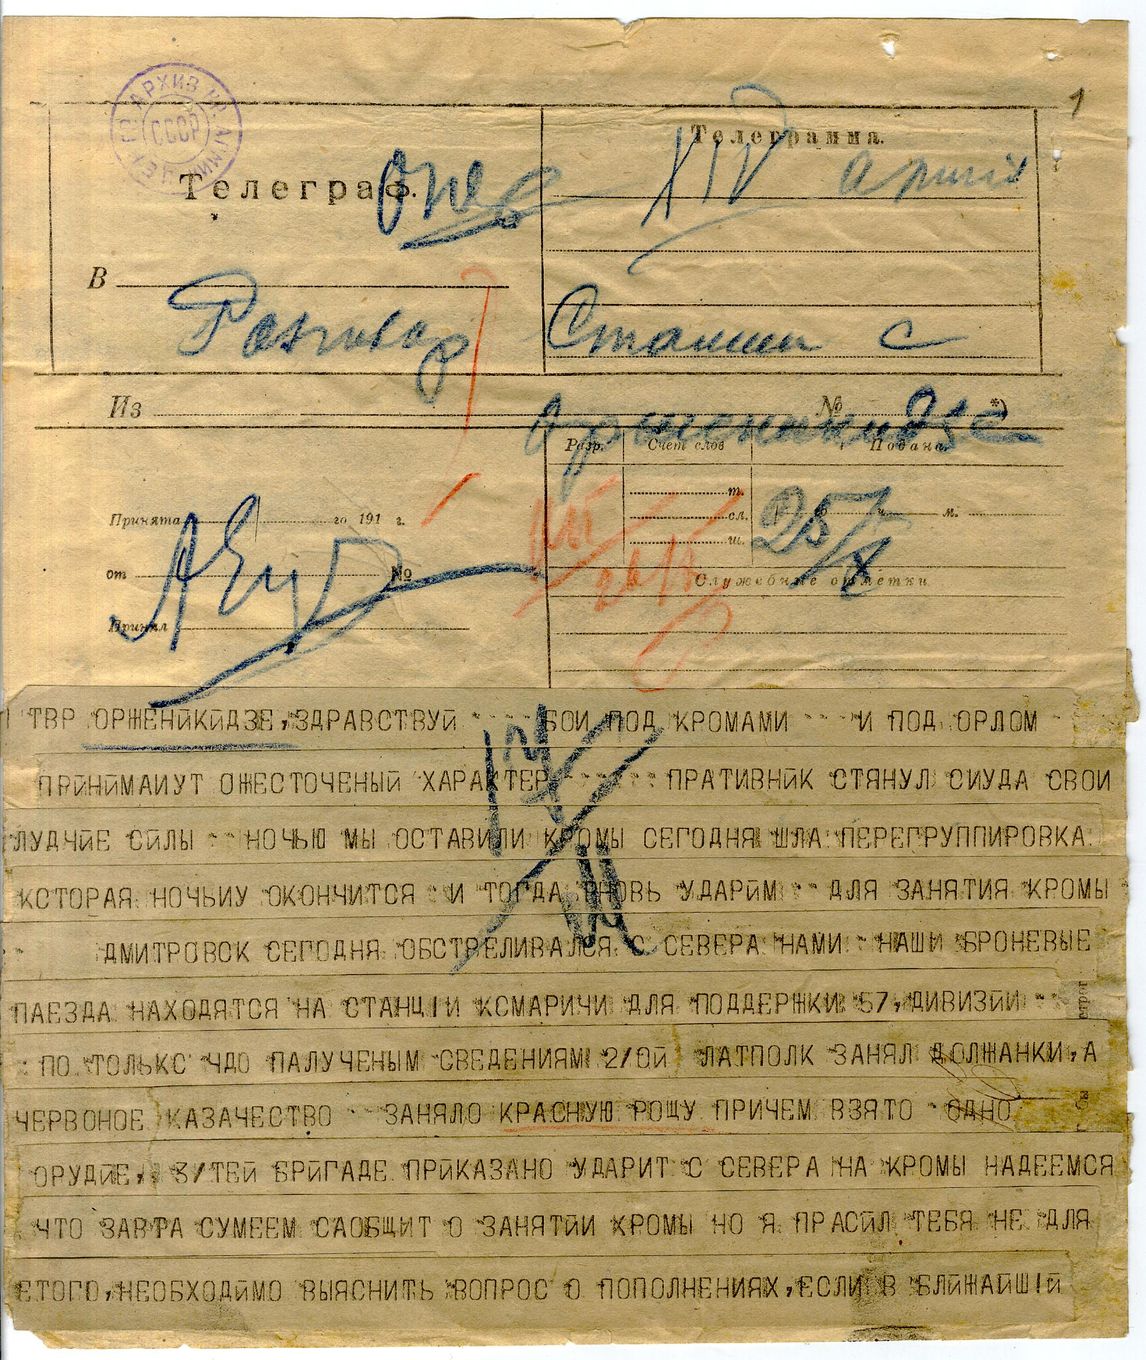 АРХИВ КР. АРМИИ
СССР
1
Телеграф.
Телеграмма.
XIV армия
В
Разговор Сталин с
Из № *)
Орженикидзе
Разр. Счет слов Подана
т.
Принята го 191 г.
сл. м.
ш.
25/X
от №
Служебные отметки.
Принял
ТВР ОРЖЕНЙКЙДЗЕ,ЗДРАВСТВУЙ БОИ ПОД КРОМАМИ И ПОД ОРЛОМ
ПРЙНЙМАИУТ ОЖЕСТОЧЕНЫЙ ХАРАКТЕР ПРАТИВНЙК СТЯНУЛ СИУДА СВОИ
ЛУДЧЙЕ СЙЛЫ НОЧЬЮ МЫ ОСТАВИЛИ КРОМЫ СЕГОДНЯ ШЛА ПЕРЕГРУППИРОВКА
КСТОРАЯ НОЧЬИУ ОКОНЧИТСЯ И ТОГДА ВНОВЬ УДАРЙМ ДЛЯ ЗАНЯТИЯ КРОМЫ
ДМИТРОВСК СЕГОДНЯ ОБСТРЕЛИВАЛСЯ С СЕВЕРА НАМИ НАШИ БРОНЕВЫЕ
ПАЕЗДА НАХОДЯТСЯ НА СТАНЦІИ КСМАРИЧИ ДЛЯ ПОДДЕРЖКИ 57,ДИВИЗЙИ
ПО ТОЛЬКС ЧДО ПАЛУЧЕНЫМ СВЕДЕНИЯМ 2/ОЙ ЛАТПОЛК ЗАНЯЛ ДОЛЖАНКИ,А
ЧЕРВОНОЕ КАЗАЧЕСТВО ЗАНЯЛО КРАСНУЮ РОЩУ ПРИЧЕМ ВЗЯТО ОДНО
ОРУДЙЕ, 3/ТЕЙ БРЙГАДЕ ПРЙКАЗАНО УДАРИТ С СЕВЕРА НА КРОМЫ НАДЕЕМСЯ
ЧТО ЗАВТРА СУМЕЕМ САОБЩИТ О ЗАНЯТЙИ КРОМЫ НО Я ПРАСЙЛ ТЕБЯ НЕ ДЛЯ
ЕТОГО,НЕОБХОДЙМО ВЫЯСНИТЬ ВОПРОС О ПОПОЛНЕНИЯХ,ЕСЛИ В БЛЙЖАЙШІЙ